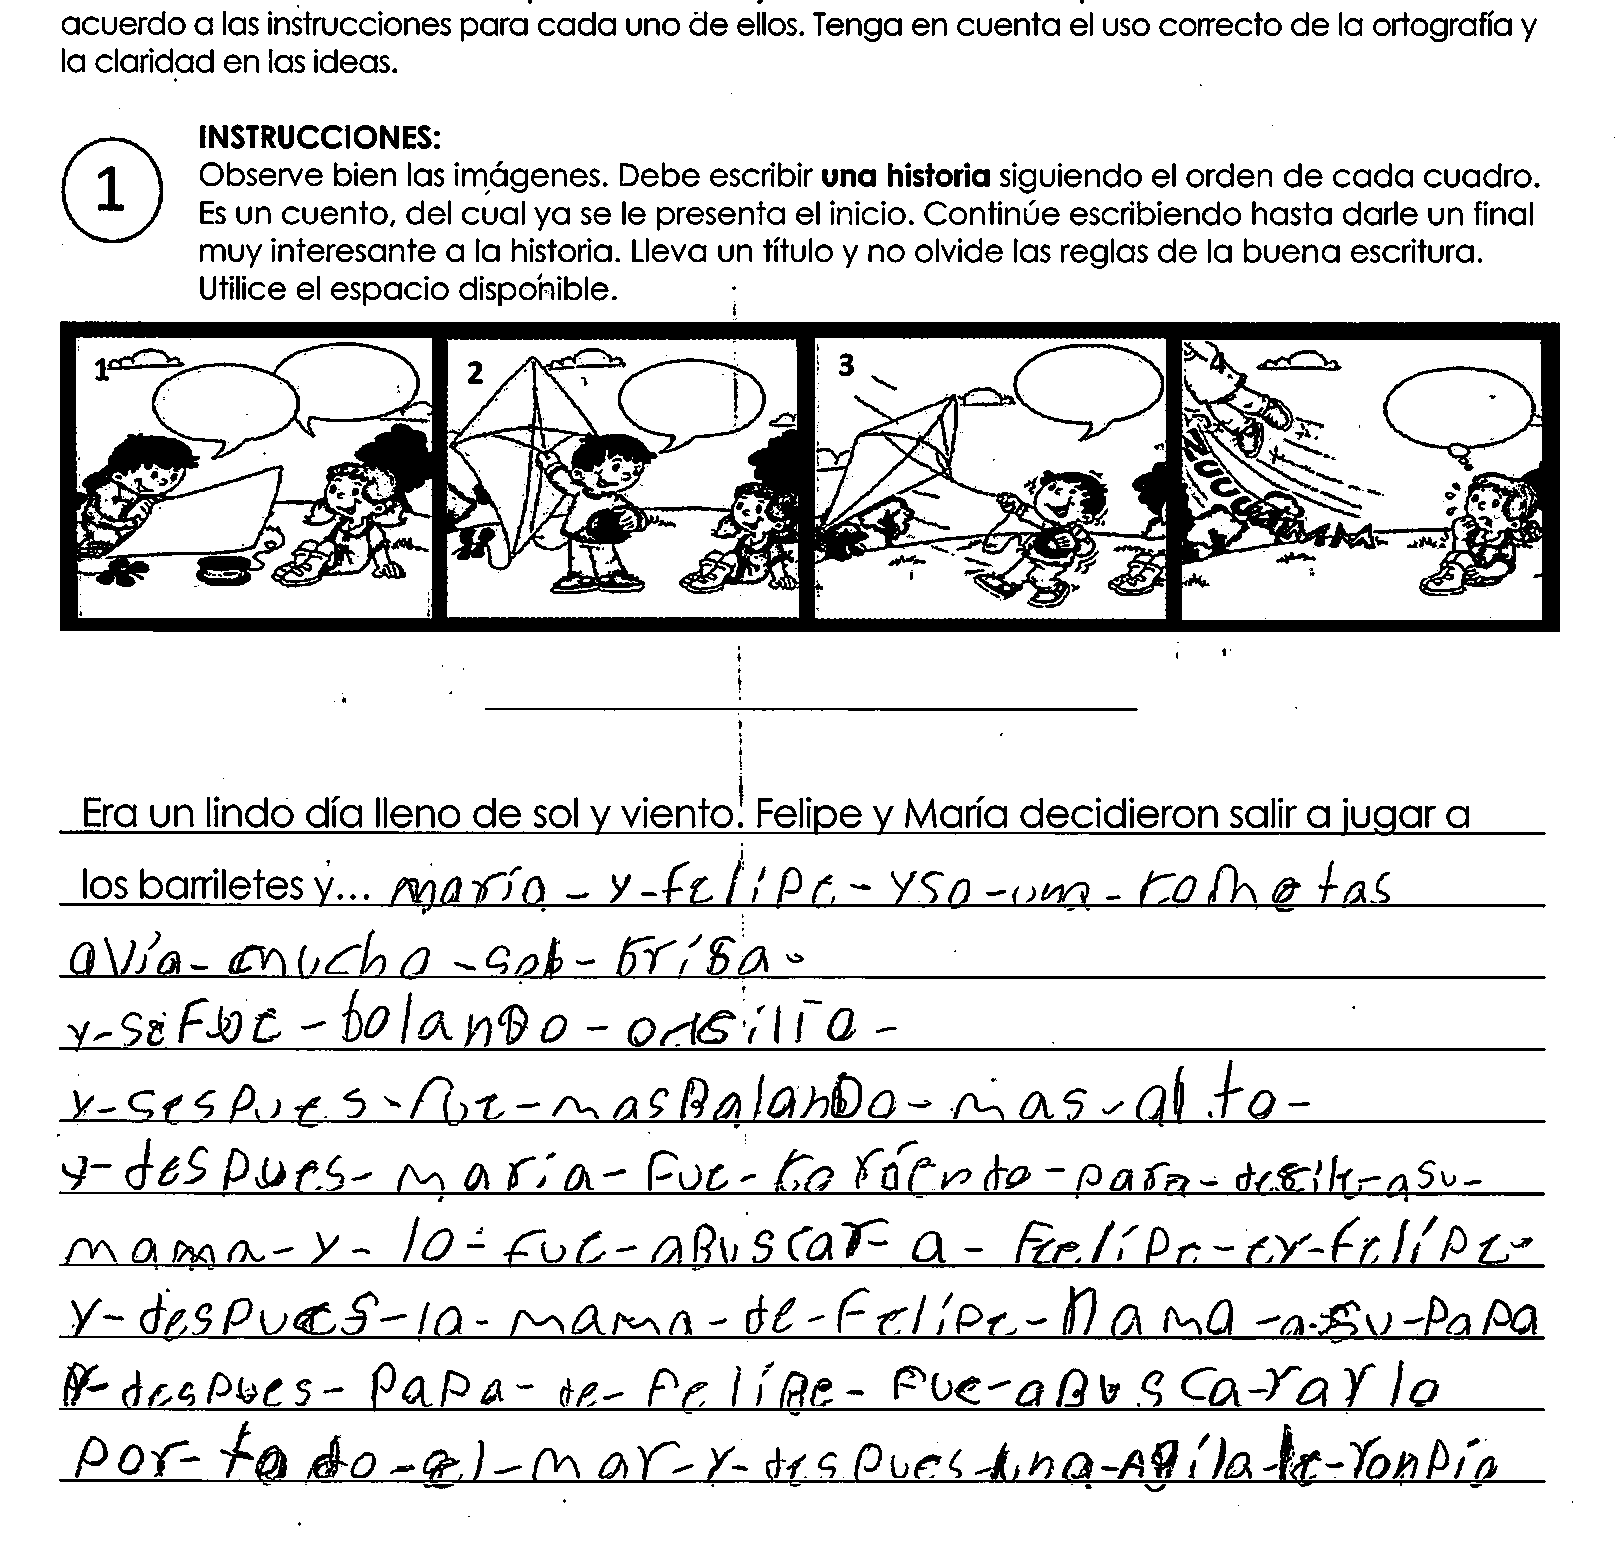 acuerdo a las instrucciones para cada uno de ellos. Tenga en cuenta el uso correcto de la ortografía y
la claridad en las ideas.
1
INSTRUCCIONES:
Observe bien las imágenes. Debe escribir una historia siguiendo el orden de cada cuadro.
Es un cuento, del cual ya se le presenta el inicio. Continúe escribiendo hasta darle un final
muy interesante a la historia. Lleva un título y no olvide las reglas de la buena escritura.
Utilice el espacio disponible.
1 2 3 4
Era un lindo día lleno de sol y viento. Felipe y María decidieron salir a jugar a
los barriletes y... maría - y - felipe - yso - una - cometas
avía - mucha - brisa
y - se fue - bolando
y - sespues - fue - mas Balando - mas - alto -
y - despues - maria - fue - coriendo - para - - a su -
mama - y - lo - fue - a Buscar - a - Felipe - - felipe -
y - despues - la - mama - de - Felipe - llama - a - su - papa
y - despues - papa - de - felipe - fue - a Busca - rarlo
por - todo - el - mar - y - despues - una - Agila - le - ronpio